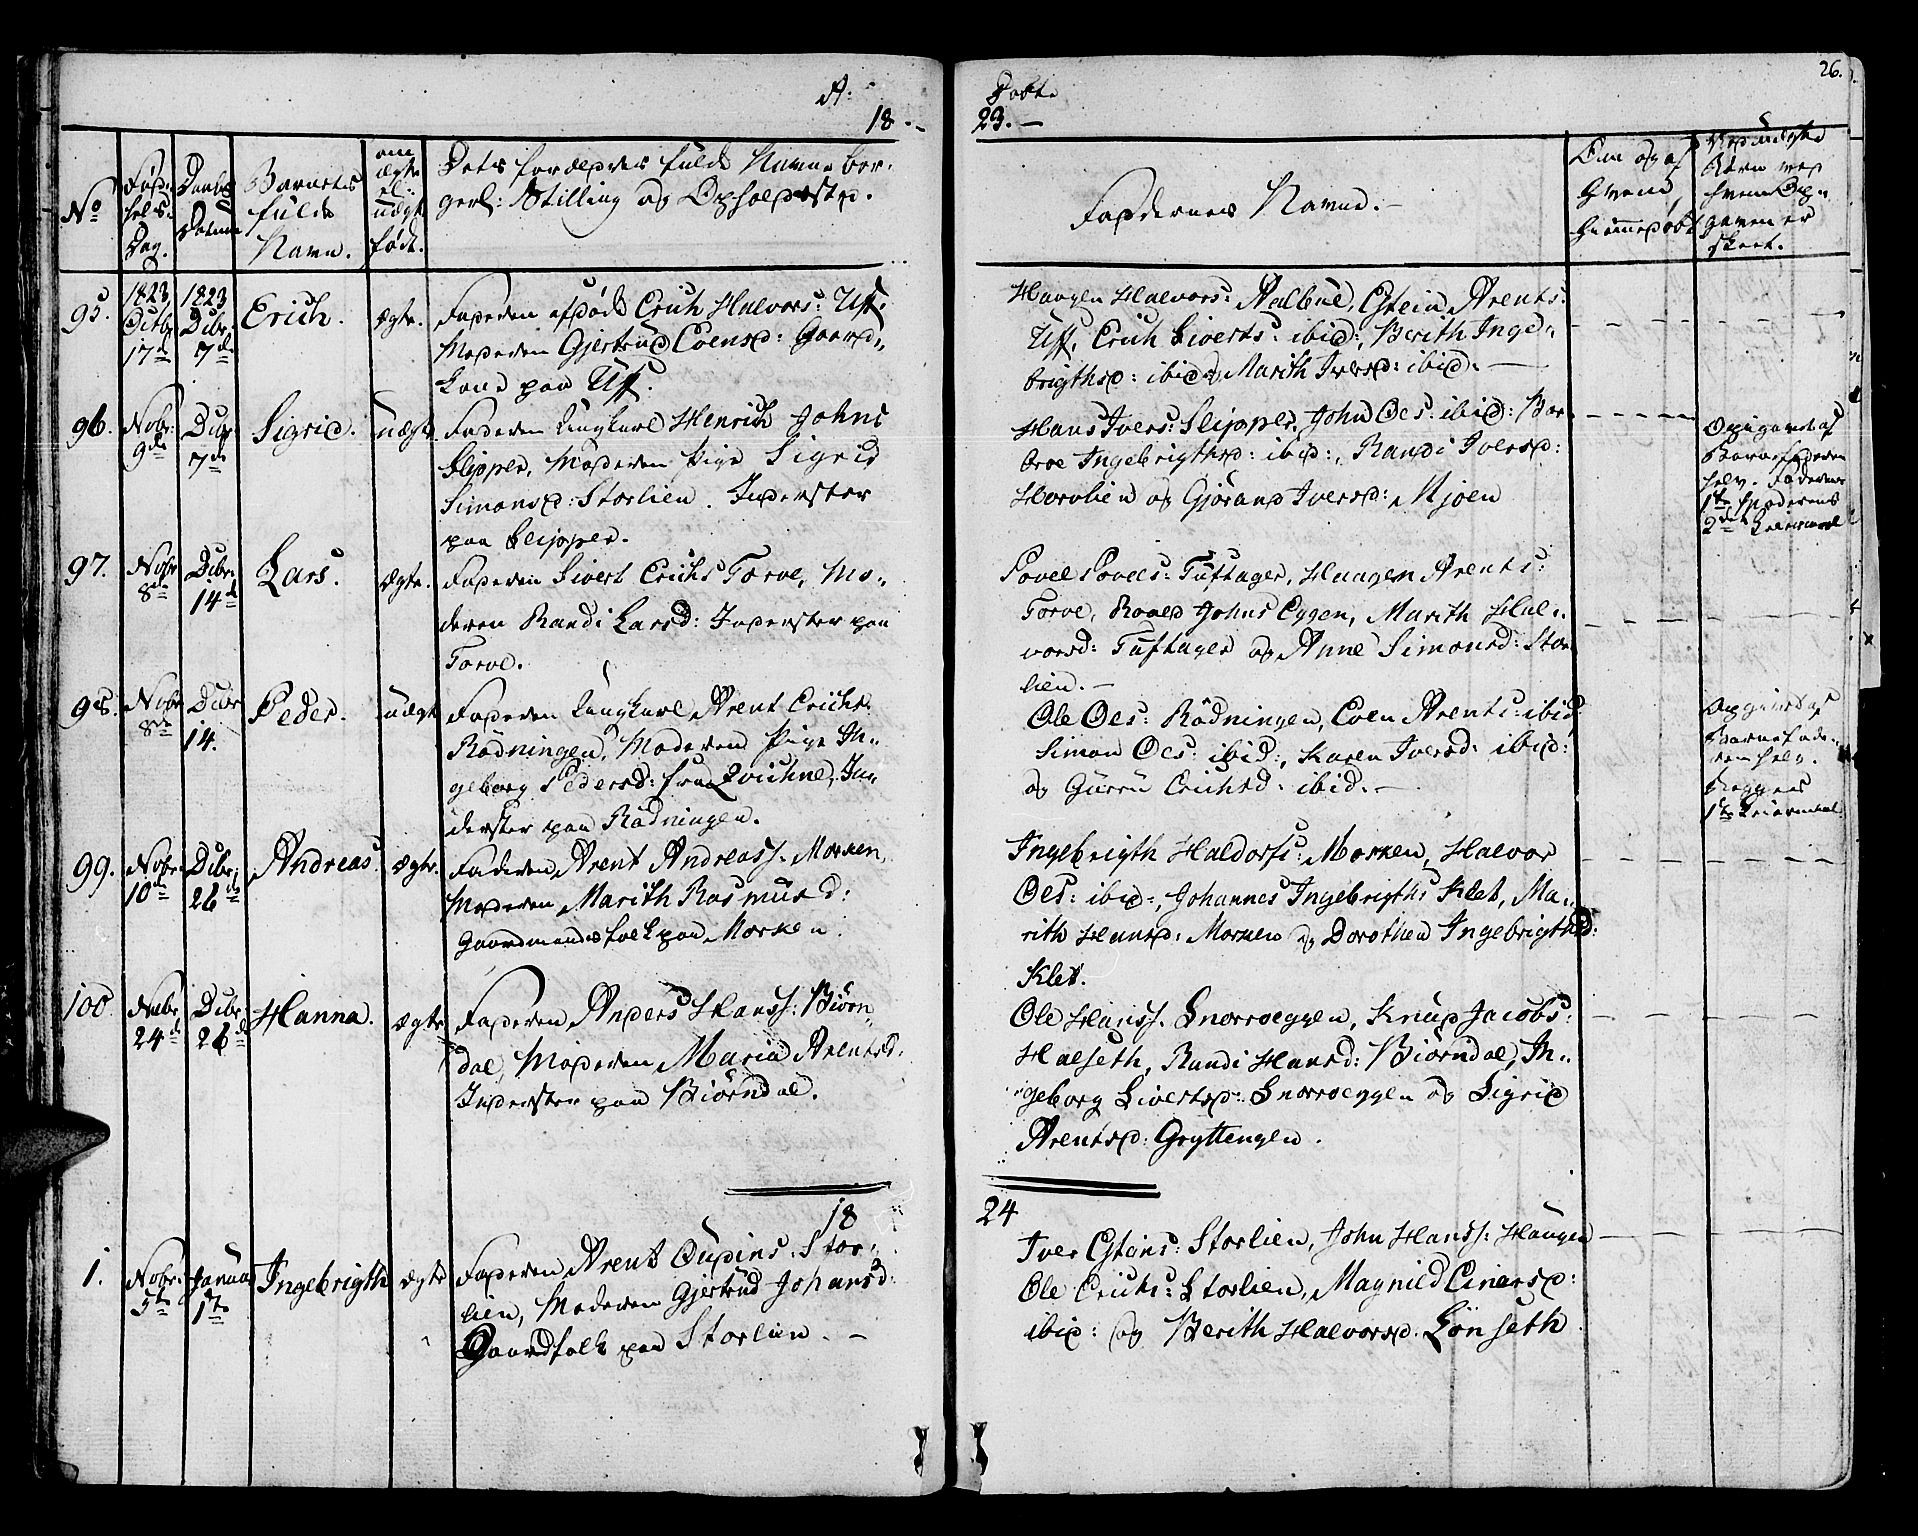 26.
A:
Døbte
18
23.
No
Fødselsdag.
Daabs Datum
Barnets fulde Navn.
om ægte el: uægte født.
Dets Forældres fulde Navne bor-
gerl: Stilling og Opholdssted.
Faddernes Navne.
Om og af hvem hiemmedøbt
95. 1823 Octbr 17de 1823 Debr: 7de Erich. ægte.
Faderen afdøde Erich Halvors: Uf,
Moderen Gjertrud Evensd: Gaard-
kone paa Uf.
Haagen Halvors: Aalbue, Estein Arents:
Uf, Erich Siverts: ibid:, Berith Inge-
brigthsd: ibid og Marith Iversd: ibid.
96. Nobr: 9de Debr: 7de Sigrid. uægte
Faderen Ungkarl Henrich Johns
Slipper, Moderen Pige Sigrid
Simonsd: Storlien. Inderster
paa Slipper.
Hans Ivers: Slipper, John Oes: ibid: Bar-
broe Ingebrigthsd: ibid:, Randi Iversd:
Horvlien og Gjørand Iversd: Mjoen
Opgivet af
Barnefaderen
selv. Faderens
1te, Moderens
2det Leiermaal
97. Nobr 8de Debr: 14de Lars. ægte.
Faderen Sivert Erichs Torve, Mo-
deren Randi Larsd: Inderster paa
Torve.
Povel Povels: Tuftager, Haagen Arents:
Torve, Roald Johns Eggen, Marith Hal-
vorsd: Tuftager og Anne Simonsd: Stor-
lien.
98. Nobr 8de Debr 14. Peder. uægte
Faderen Ungkarl Arent Erichs:
Rødningen, Moderen Pige In-
geborg Pedersd: fra Qvichne, In-
derster paa Rødningen.
Ole Oes: Rødningen, Even Arents: ibid
Simon Oes: ibid:, Karen Iversd: ibid:
og Guru Erichsd: ibid.
Opgivet af
Barnefade-
ren selv.
Begges
1te Leiermaal.
99. Nobr: 10de Debr: 26de Andreas. ægte.
Faderen Arent Andreass: Morken,
Moderen Marith Rasmusd:
Gaardmandsfolk paa Morken.
Ingebrigth Haldors: Morken, Halvor
Oes: ibid:, Johannes Ingebrigths Klet, Ma-
rith Hansd: Morken og Dorothea Ingebrigthsd:
Klet.
100 Nobr: 24de Debr: 26de Hanna. ægte
Faderen Anders Hanss: Biørn-
dal, Moderen Maria Arentsd.
Inderster paa Biørndal.
Ole Hanss. Snorroeggen, Knud Jacobs:
Halseth, Randi Hansd: Biørndal, In-
geborg Sivertsd: Snorroeggen og Sigrid
Arentsd: Gryttengen.
18
24
1. Nobr: 5te Januar 1te Ingebrigth ægte
Faderen Arent Oudins: Stor-
lien, Moderen Gjertrud Johansd:
Gaardfolk paa Storlien.
Iver Estens: Storlien, John Hanss: Haugen
Ole Erichs: Storlien, Magnild Einersd:
ibid: og Berith Halvorsd: Lønseth